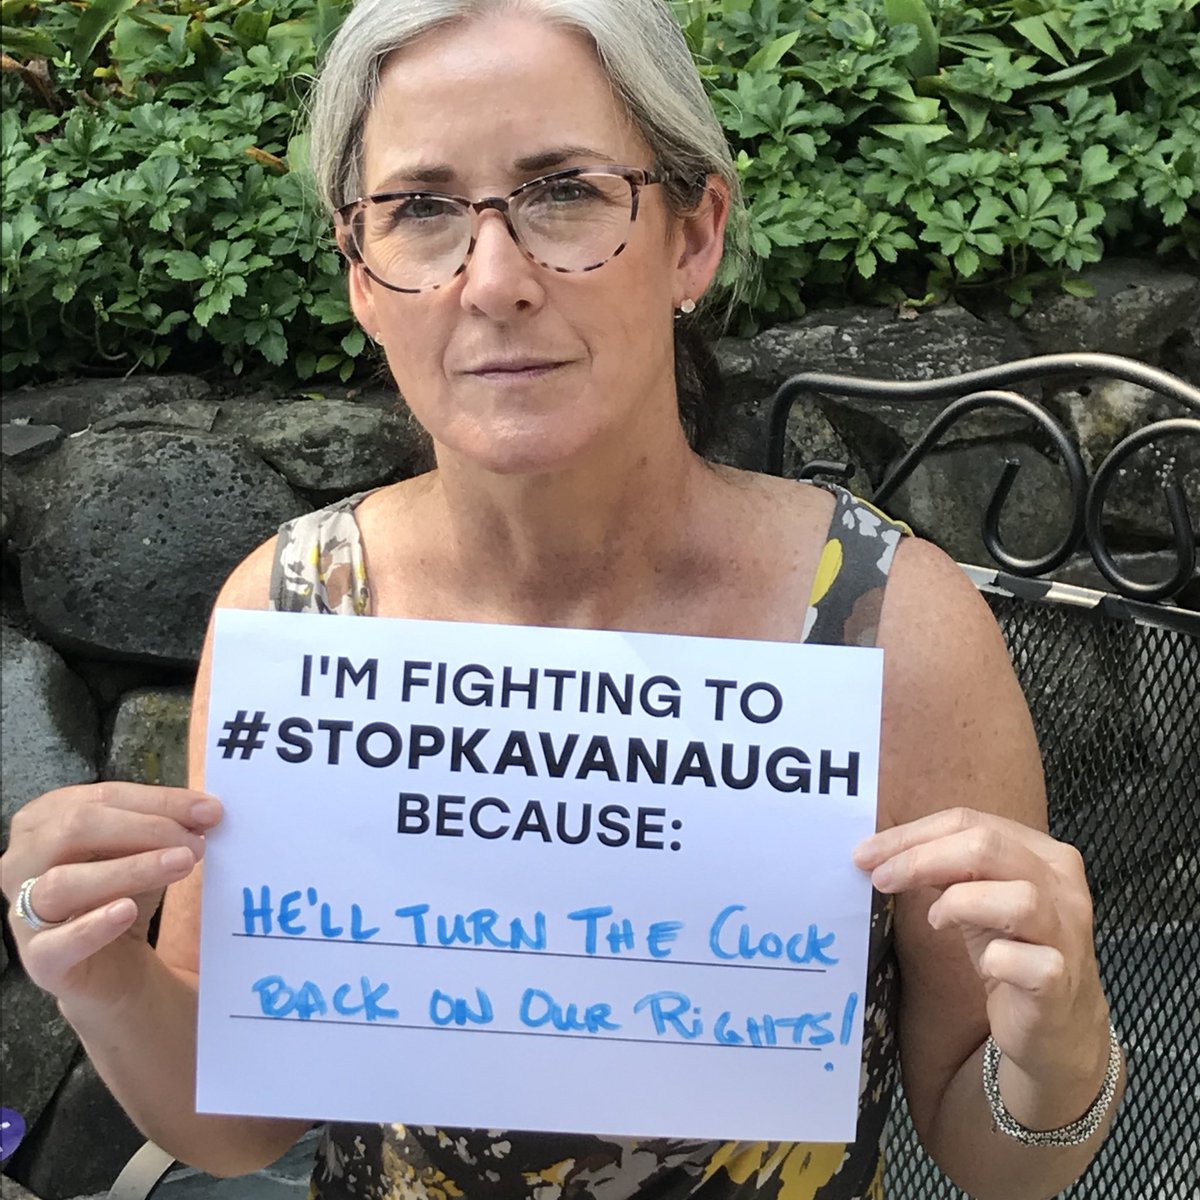 I'M FIGHTING TO
#STOPKAVANAUGH
BECAUSE:
HE'LL TURN THE CLOCK
BACK ON OUR RIGHTS!